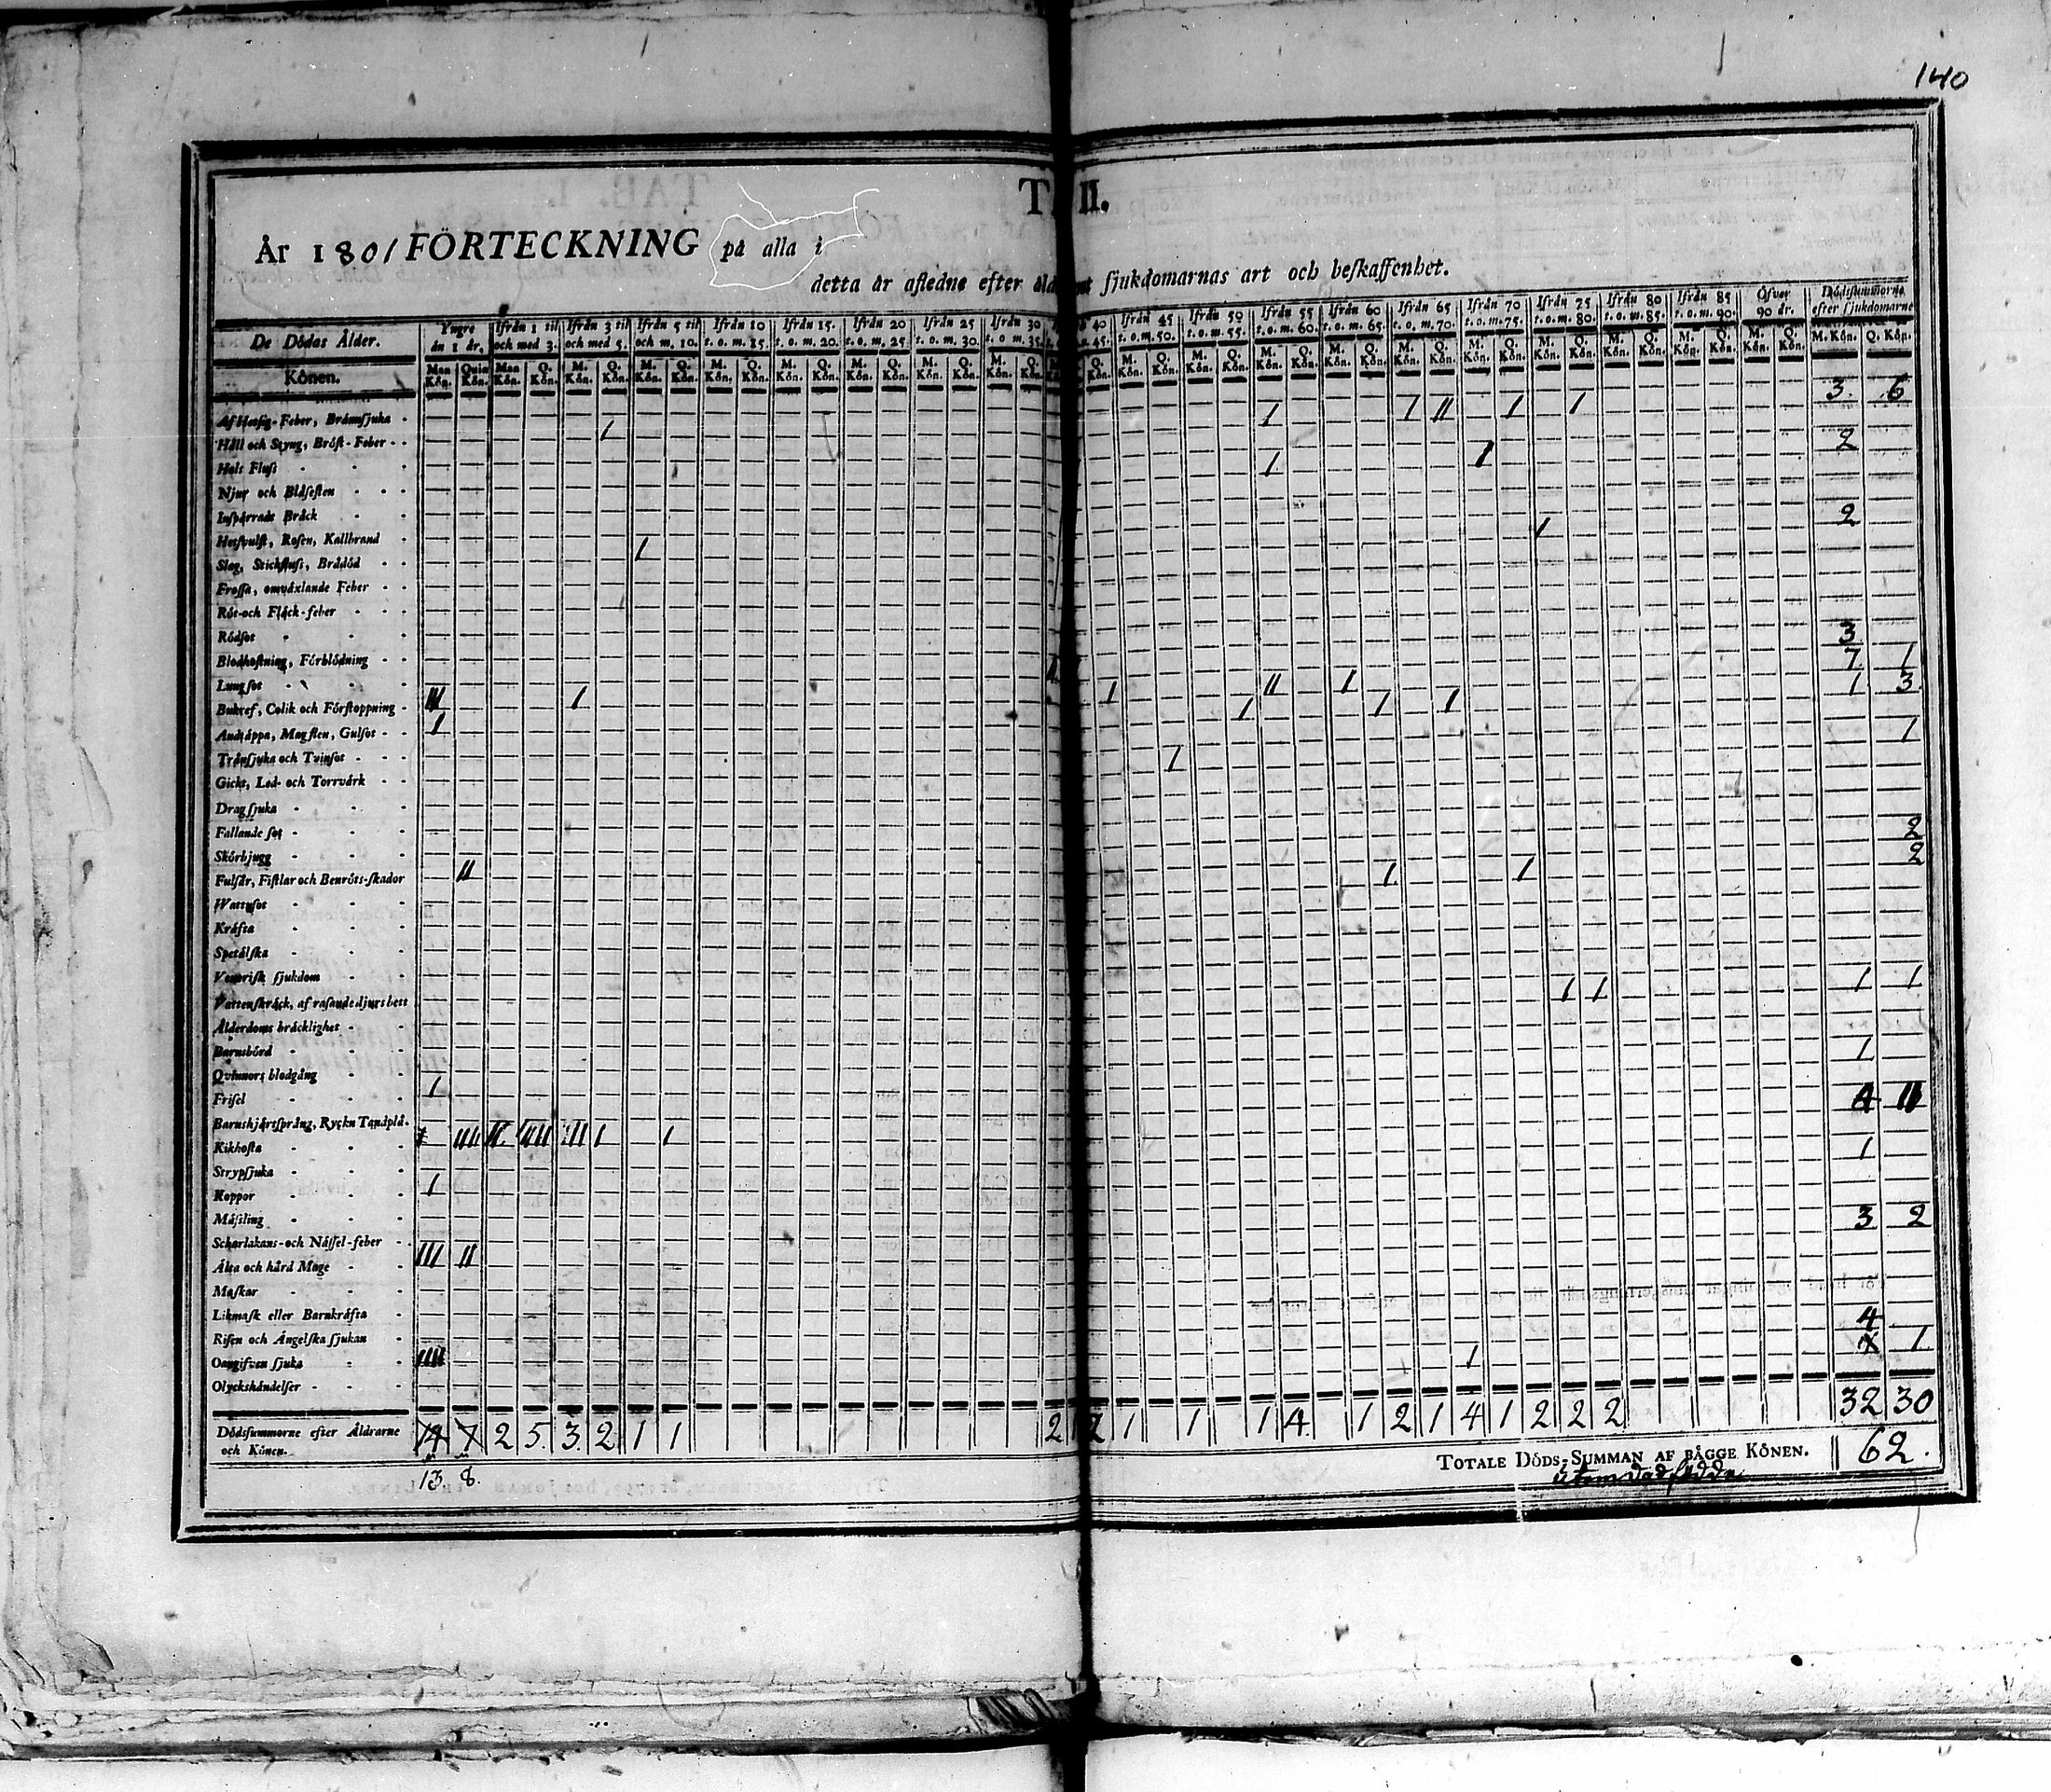 140
T II.
År 1801 FÖRTECKNING på alla i
detta år afledne efter åld sjukdomarnas art och beskaffenhet.
De Dödas Ålder. Yngre än 1 år, Ifrån 1 til och med 3. Ifrån 3 til och med 5. Ifrån 5 til och m. 10. Ifrån 10 t. o. m. 15. Ifrån 15. t. o. m. 20. Ifrån 20 t. o. m. 25. Ifrån 25 t. o. m. 30. Ifrån 30 t. o. m. 35. 40 45. Ifrån 45 t. o. m. 50. Ifrån 50 t. o. m. 55. Ifrån 55 t. o. m. 60. Ifrån 60 t. o. m. 65. Ifrån 65 t. o. m. 70. Ifrån 70 t. o. m. 75. Ifrån 75 t. o. m. 80. Ifrån 80 t. o. m. 85. Ifrån 85 t. o. m. 90. Öfver 90 år. Dödssummorne efter sjukdomarne
Könen. Man Kön. Quin Kön. Man Kön. Q. Kön. M. Kön. Q. Kön. M. Kön. Q. Kön. M. Kön. Q. Kön. M. Kön. Q. Kön. M. Kön. Q. Kön. M. Kön. Q. Kön. M. Kön. Q. Kön. Q. Kön. M. Kön. Q. Kön. M. Kön. Q. Kön. M. Kön. Q. Kön. M. Kön. Q. Kön. M. Kön. Q. Kön. M. Kön. Q. Kön. M. Kön. Q. Kön. M. Kön. Q. Kön. M. Kön. Q. Kön. M. Kön. Q. Kön. M. Kön. Q. Kön.
Af Hetsig-Feber, Brännsjuka 1 1 1 II 1 1 3. 6
Håll och Styng, Bröst-Feber
Hals Fluss 1 1 2
Njur och Blåsesten
Inspärrade Bråck
Hetsvulst, Rosen, Kallbrand 2
Slag, Stickfluss, Brådöd 1 1
Frossa, omväxlande Feber
Röt-och Fläck-feber
Rödsot
Blodhostning, Förblödning 3
Lungsot 7 1
Bukref, Colik och Förstoppning III 1 1 II 1 1 3.
Andtäppa, Magsten, Gulsot 1 1 1 1
Tränsjuka och Tvinsot 1 1
Gickt, Led- och Torrvärk
Dragsjuka
Fallande sot
Skörbjugg 2
Fulsår, Fistlar och Benröts-skador II 1 1 2
Wattusot
Kräfta
Spetälska
Venerisk sjukdom
Vattenskräck, af rasande djurs bett 1 1 1 1
Ålderdoms bräcklighet
Barnsbörd
Qvinnors blodgång 1
Frisel 1
Barnshjärtsprång, Ryck Tandplå. 11
Kikhosta 1 IIII II IIIII III 1 1
Strypsjuka 1
Koppor 1
Mässling
Scharlakans-och Nässel-feber 3 2
Älta och hård Mage III II
Maskar
Likmask eller Barnkräfta
Risen och Ängelska sjukan 4
Oangifven sjuka IIII 1 1
Olyckshändelser
Dödssummorne efter Åldrarne och Könen. 14 7 2 5. 3. 2 1 1 2 2 1 1 1 4. 1 2 1 4 1 2 2 2 32 30
13. 8.
TOTALE DÖDS-SUMMAN AF BÅGGE KÖNEN. 62.